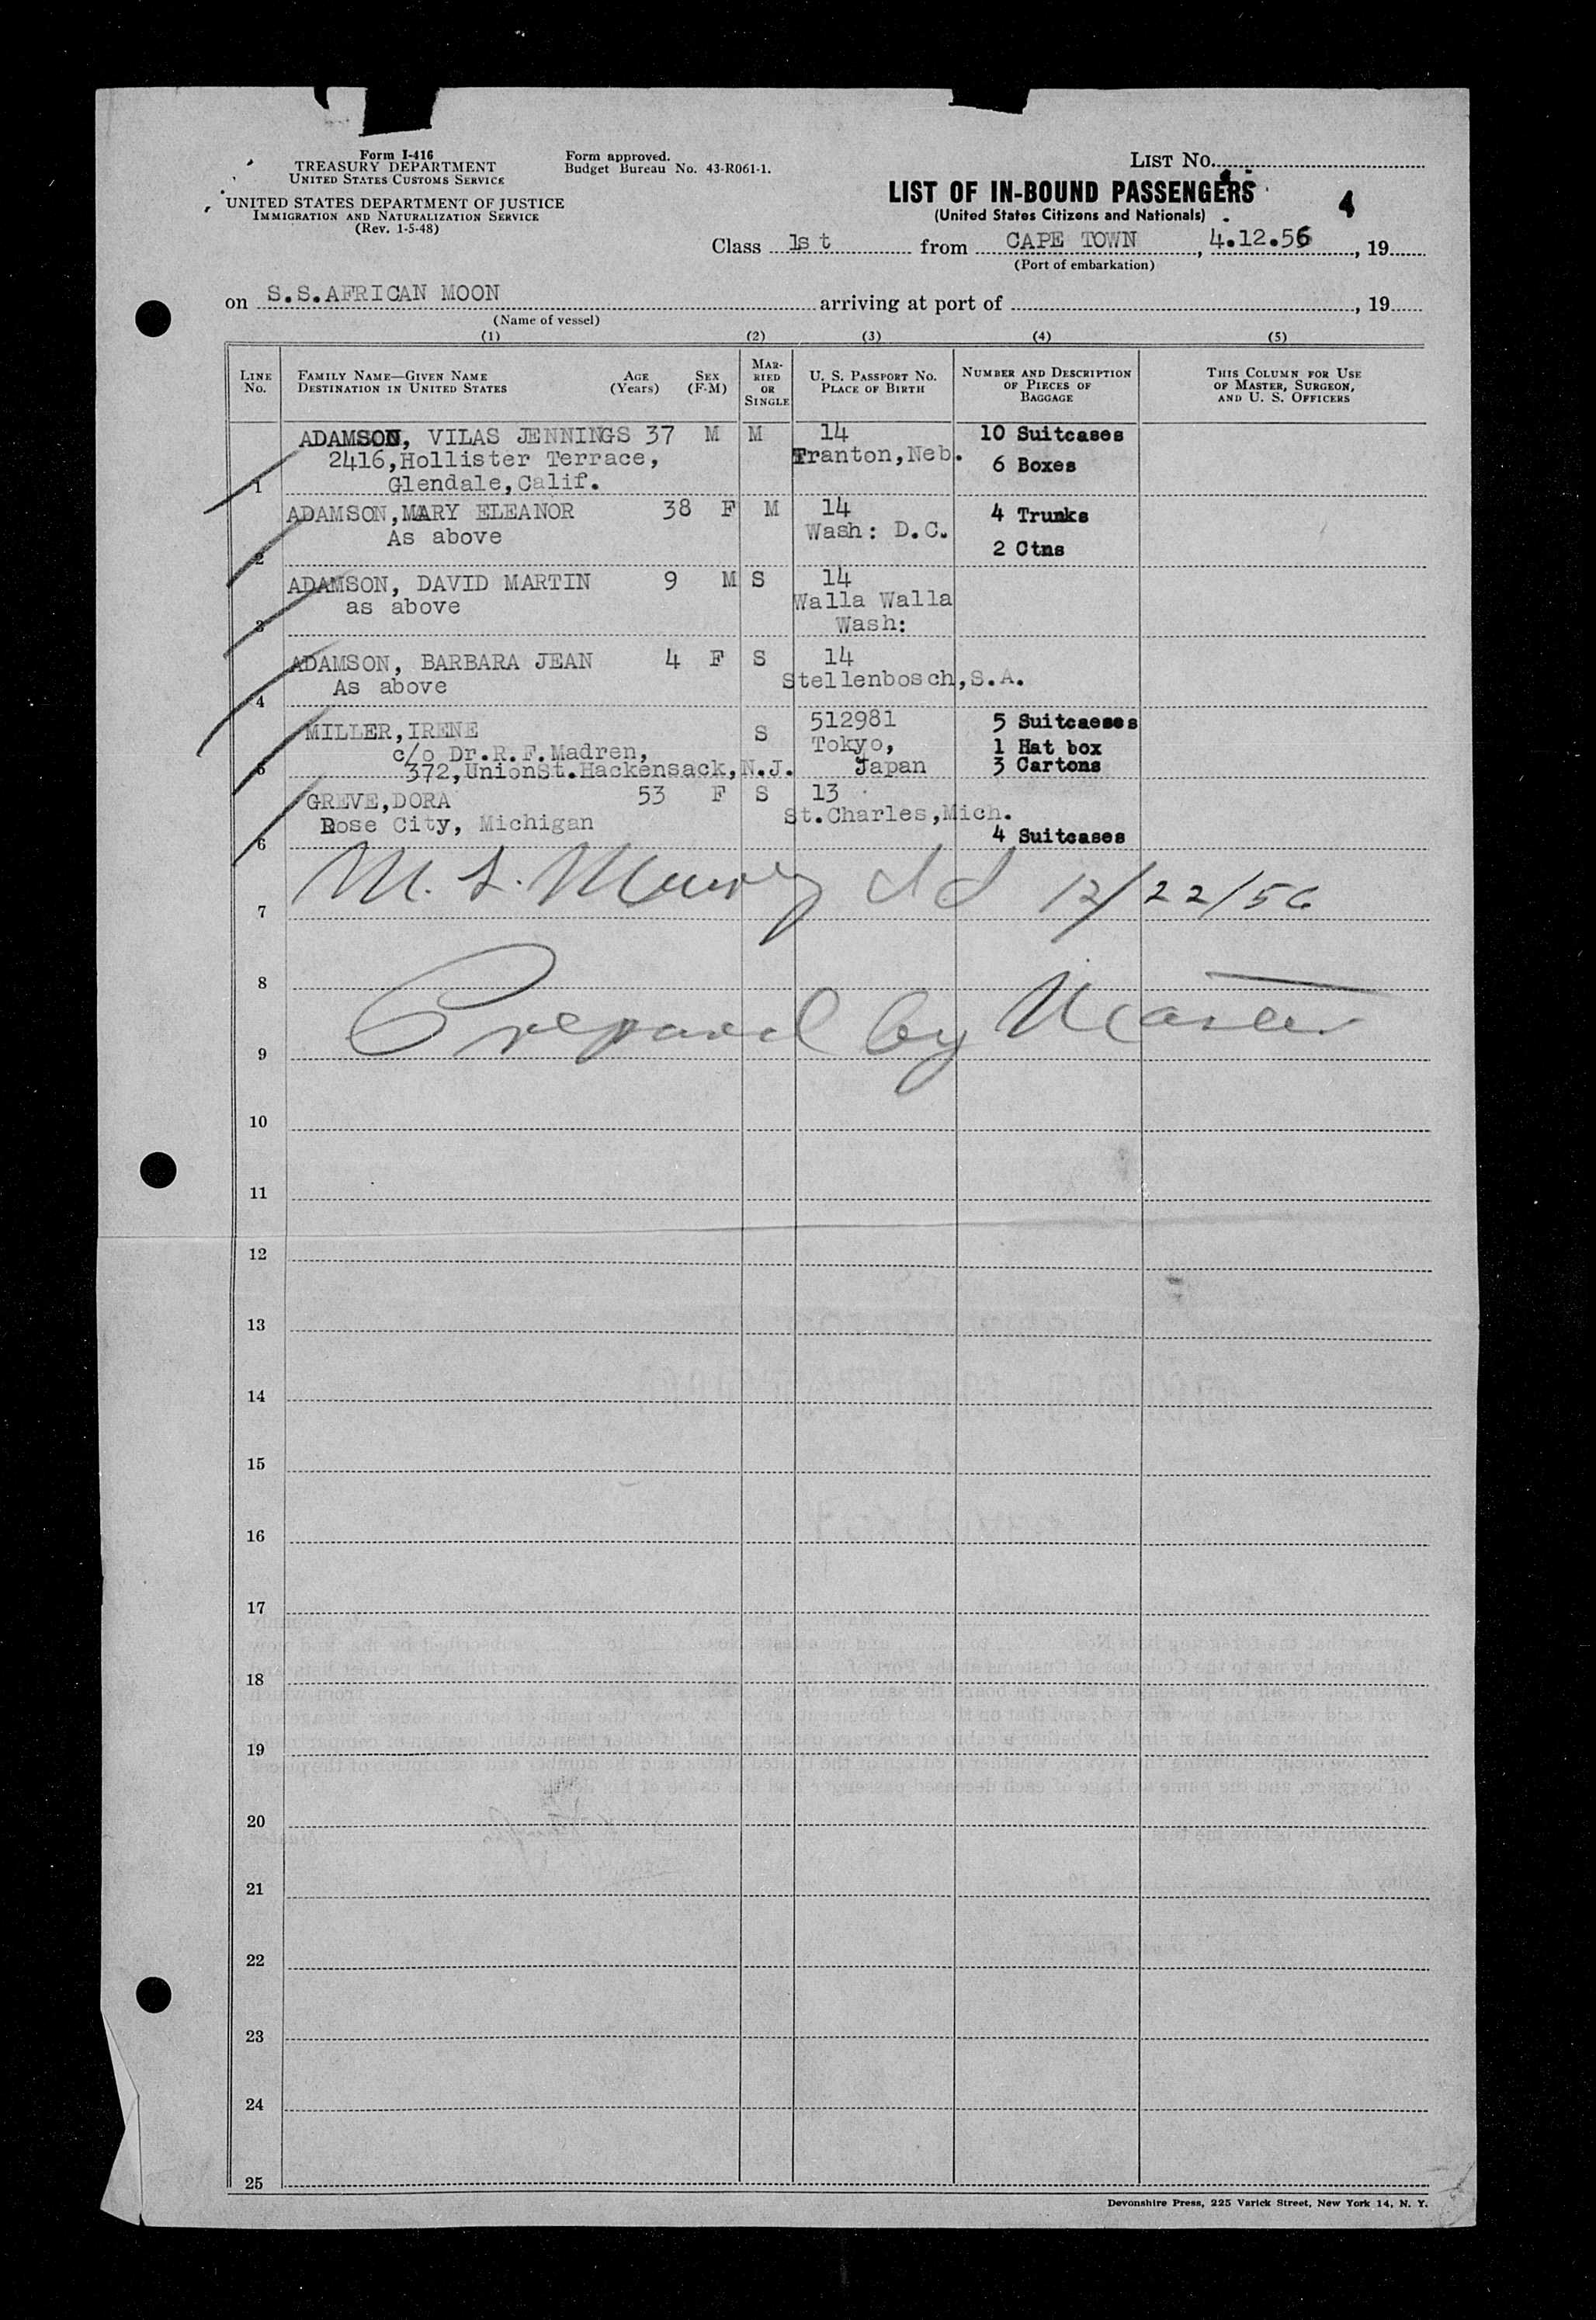 Form I-416
TREASURY DEPARTMENT
UNITED STATES CUSTOMS SERVICE
UNITED STATES DEPARTMENT OF JUSTICE
IMMIGRATION AND NATURALIZATION SERVICE
(Rev. 1-5-48)
Form approved.
Budget Bureau No. 43-R061-1.
LIST NO.
LIST OF IN-BOUND PASSENGERS
(United States Citizens and Nationals)
4
Class 1st from CAPE TOWN, 4.12.56, 19
(Port of embarkation)
on S.S.AFRICAN MOON arriving at port of , 19
(Name of vessel)
(1) (2) (3) (4) (5)
LINE No.
FAMILY NAME—GIVEN NAME
DESTINATION IN UNITED STATES
AGE (Years)
SEX (F-M)
MARRIED OR SINGLE
U. S. PASSPORT NO.
PLACE OF BIRTH
NUMBER AND DESCRIPTION
OF PIECES OF
BAGGAGE
THIS COLUMN FOR USE
OF MASTER, SURGEON,
AND U. S. OFFICERS
ADAMSON, VILAS JENNINGS 37 M M 14 10 Suitcases
2416,Hollister Terrace, Tranton,Neb. 6 Boxes
1 Glendale,Calif.
ADAMSON,MARY ELEANOR 38 F M 14 4 Trunks
As above Wash: D.C.
2 2 Ctns
ADAMSON, DAVID MARTIN 9 M S 14
as above Walla Walla
3 Wash:
ADAMSON, BARBARA JEAN 4 F S 14
As above Stellenbosch,S.A.
4
MILLER,IRENE S 512981 5 Suitcaeses
c/o Dr.R.F.Madren, Tokyo, 1 Hat box
5 372,UnionSt.Hackensack,N.J. Japan 3 Cartons
GREVE,DORA 53 F S 13
Rose City, Michigan St.Charles,Mich.
6 4 Suitcases
7 M. L. 12/22/56
8
9 Prepared by Master
10
11
12
13
14
15
16
17
18
19
20
21
22
23
24
25
Devonshire Press, 225 Varick Street, New York 14, N. Y.